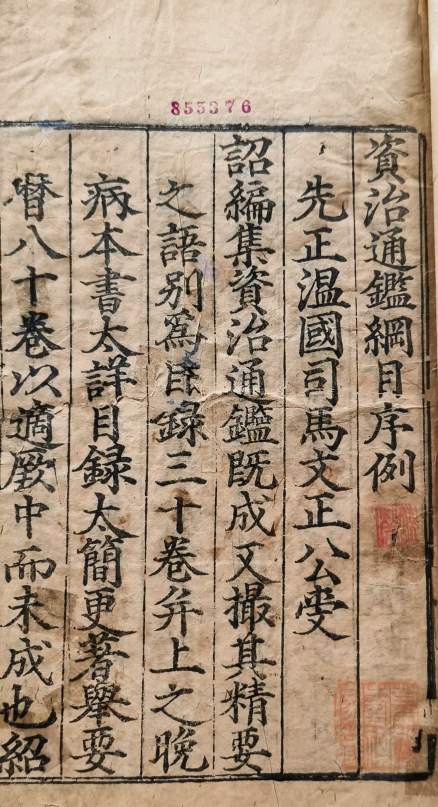 855376
資治通鑑綱目序例
先正温國司馬文正公受
詔編集資治通鑑既成又撮其精要
之語别爲目録三十卷并上之晚
病本書太詳目録太簡更著舉要
曆八十卷以適厥中而未成也紹